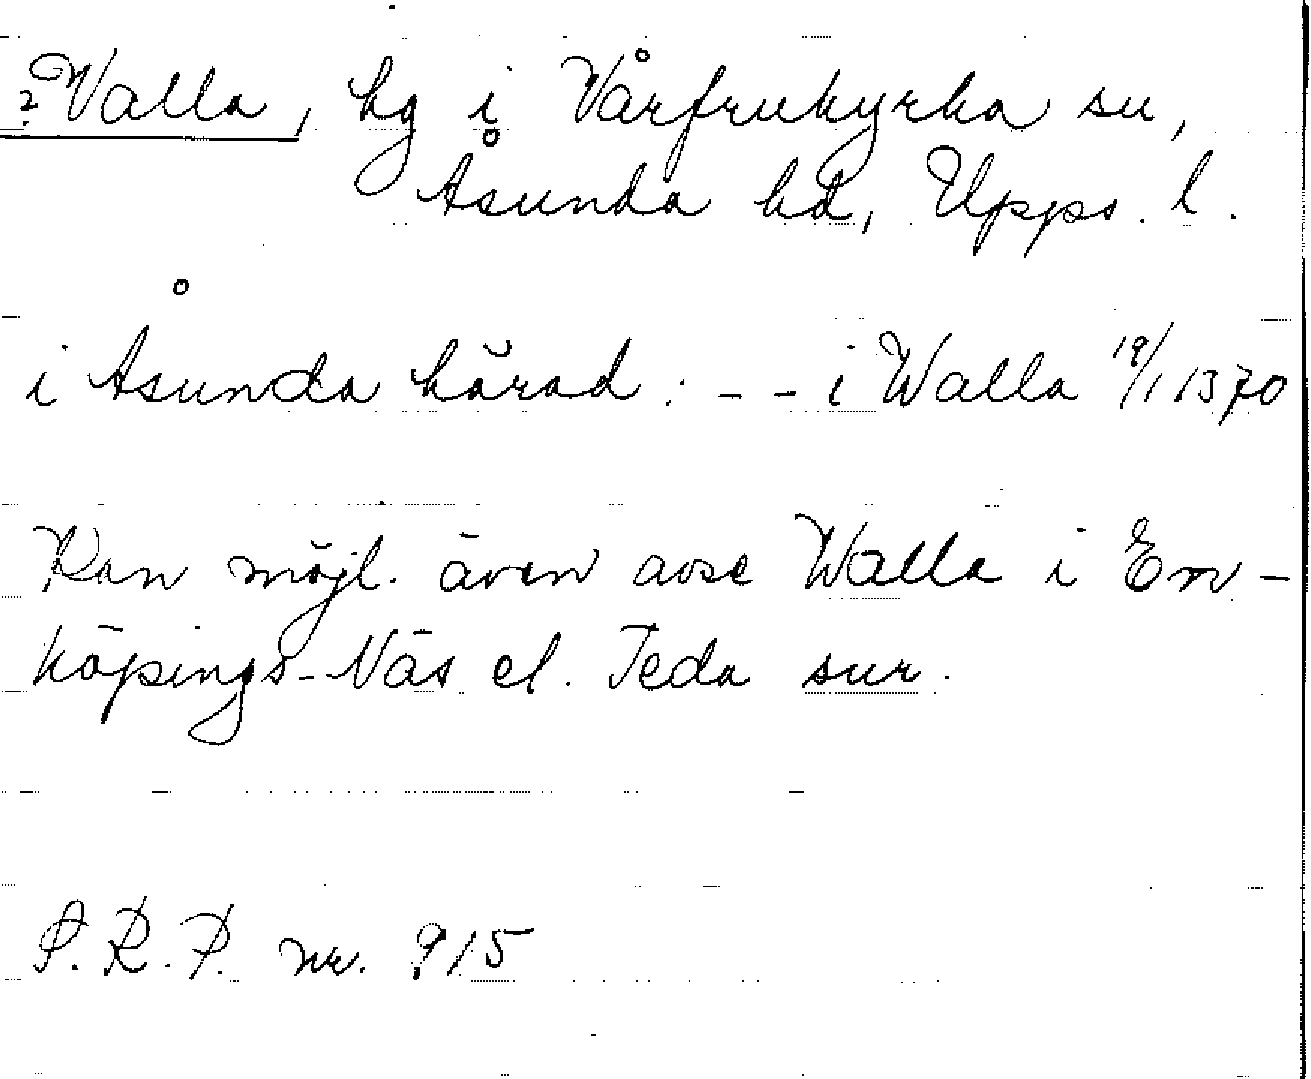 ? Valla, hg i Vårfrukyrka sn,
Åsunda hd, Upps. l.
i Åsunda härad: - - i Walla 19/1 1370
Kan möjl. även avse Walla i En-
köpings-Näs el. Teda snr.
S.R.P. nr. 915